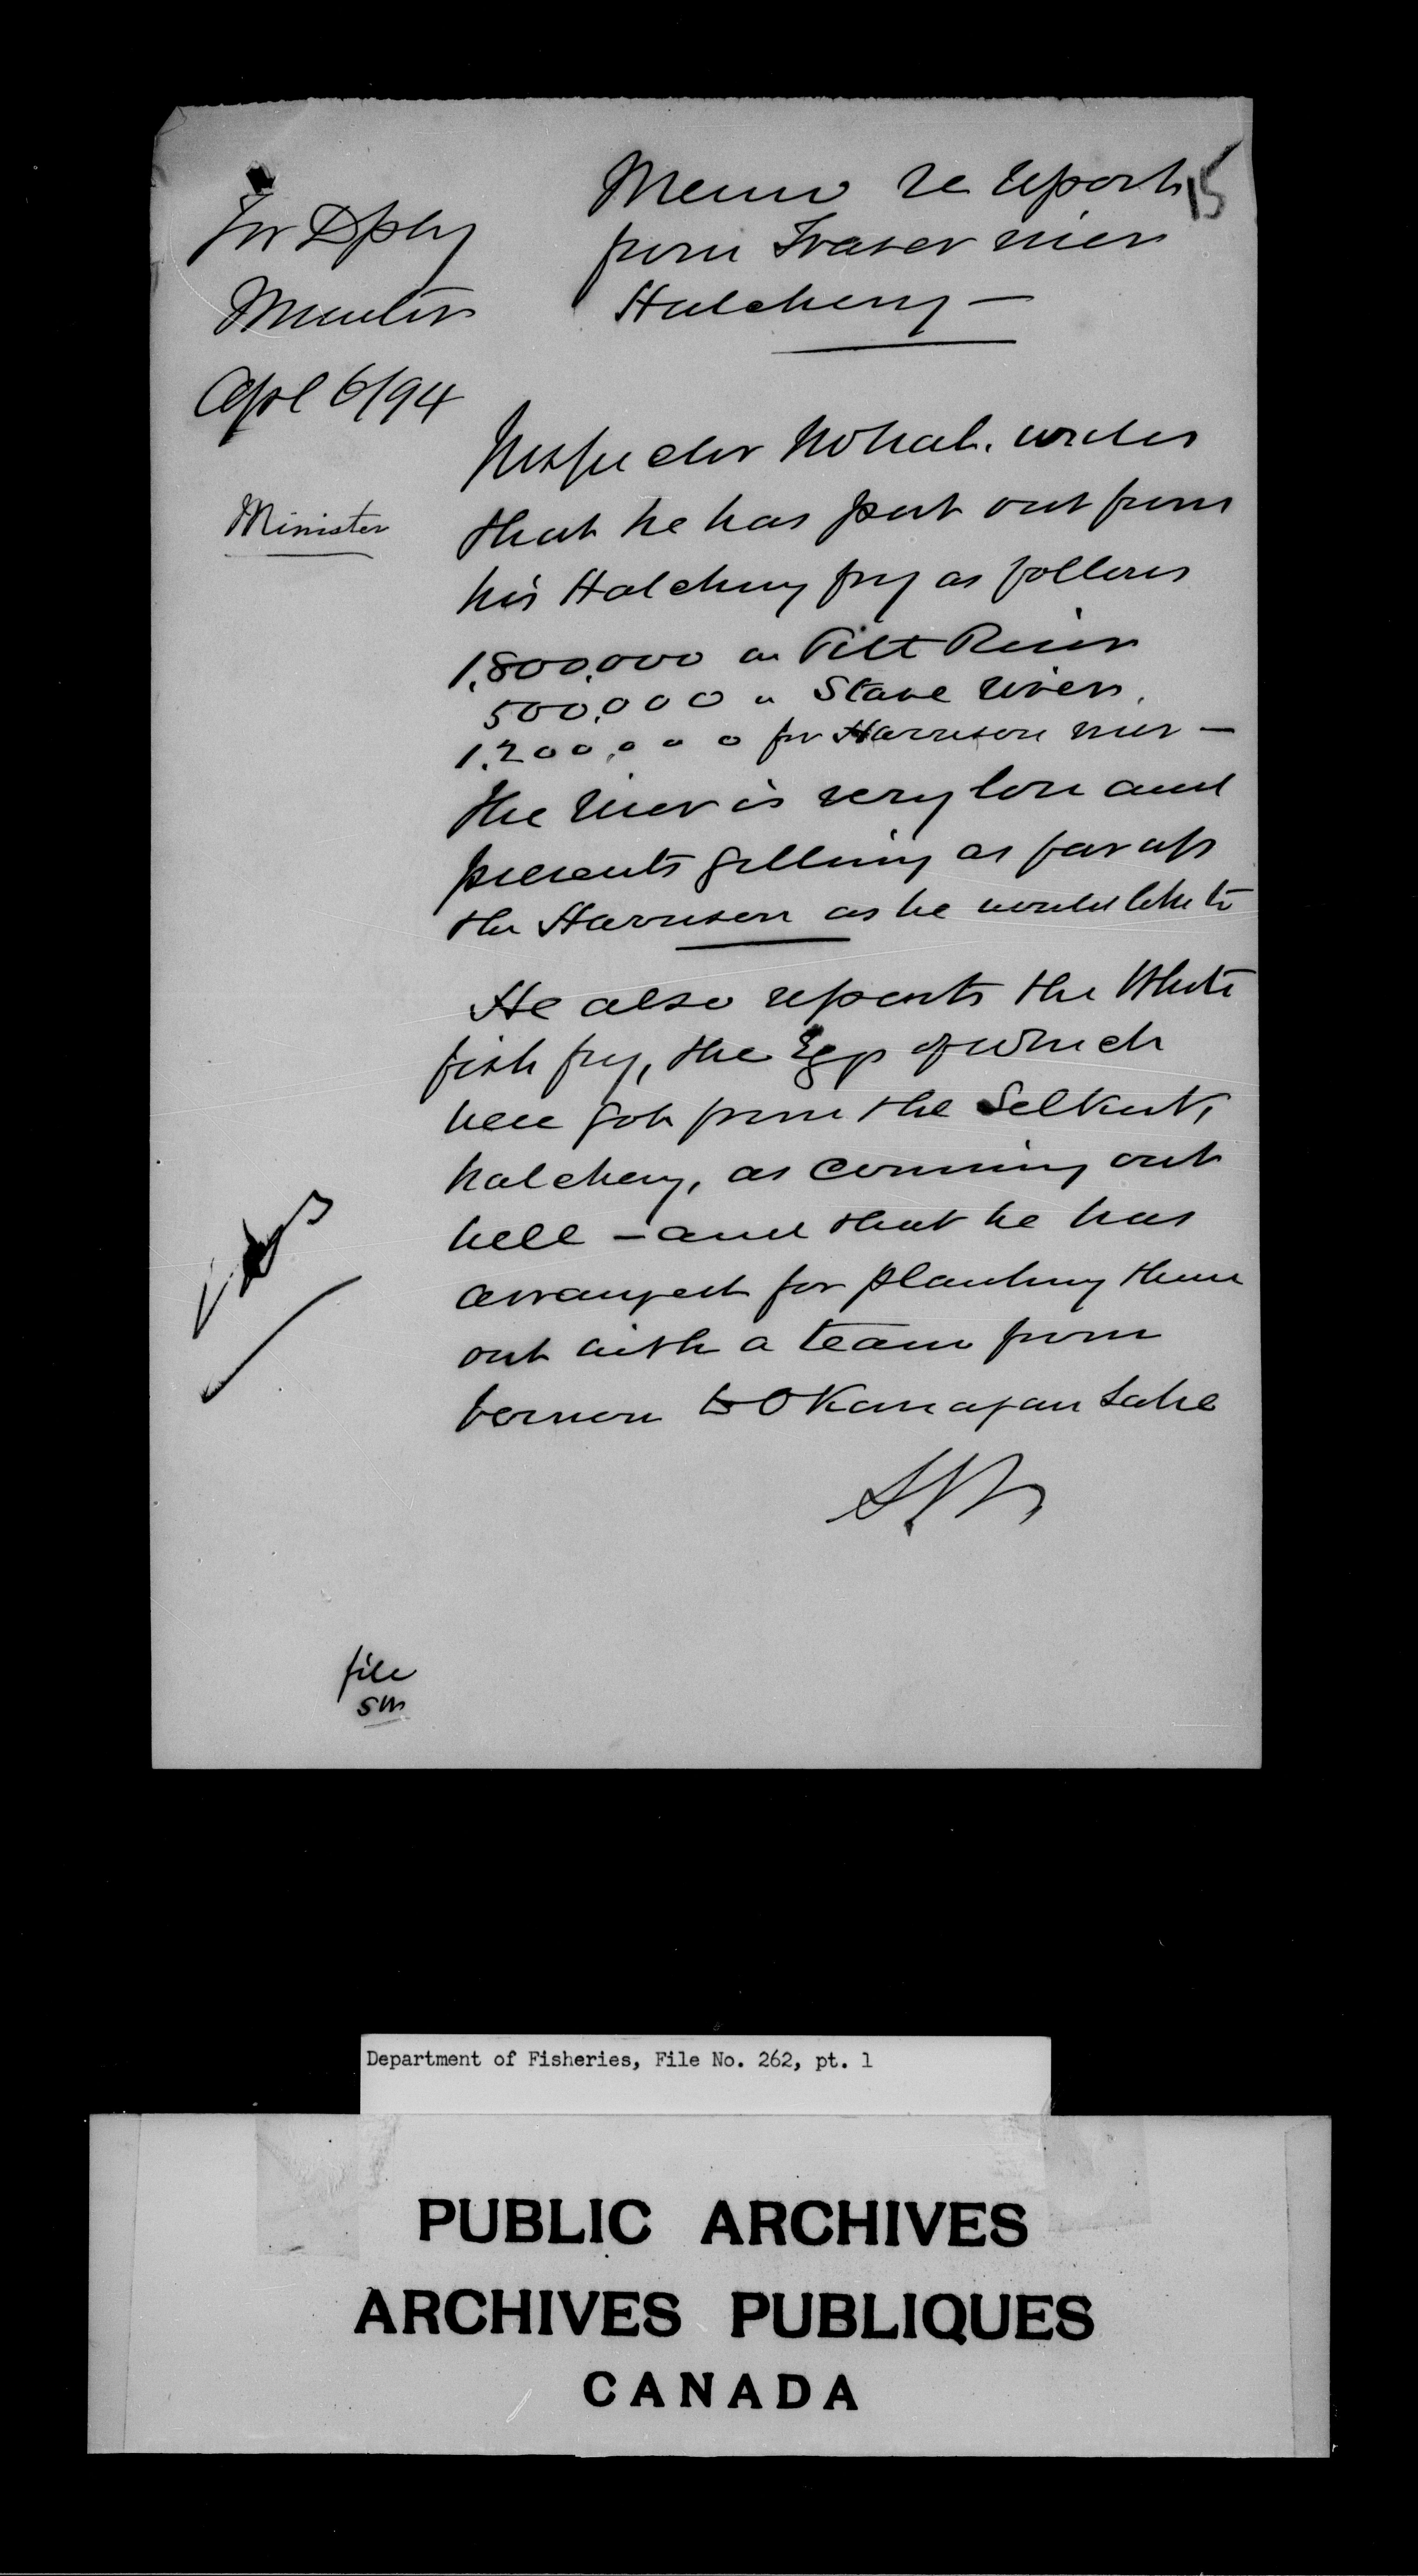 15
For Dpty
Minister
Apl 6/94
Minister
Memo re report
from Fraser river
Hatchery —
Inspector McNab. writes
that he has put out from
his Hatchery fry as follows
1,800,000 in Pitt River
500,000 " Stave river.
1,200,000 for Harrison river —
The river is very low and
prevents getting as far up
the Harrison as he would like to
He also reports the White
fish fry, the Eggs of which
were got from the Selkirk,
hatchery, as comming out
well — and that he has
arranged for planting them
out with a team from
Vernon to Okanagan Lake
file
SW
Department of Fisheries, File No. 262, pt. 1
PUBLIC ARCHIVES
ARCHIVES PUBLIQUES
CANADA